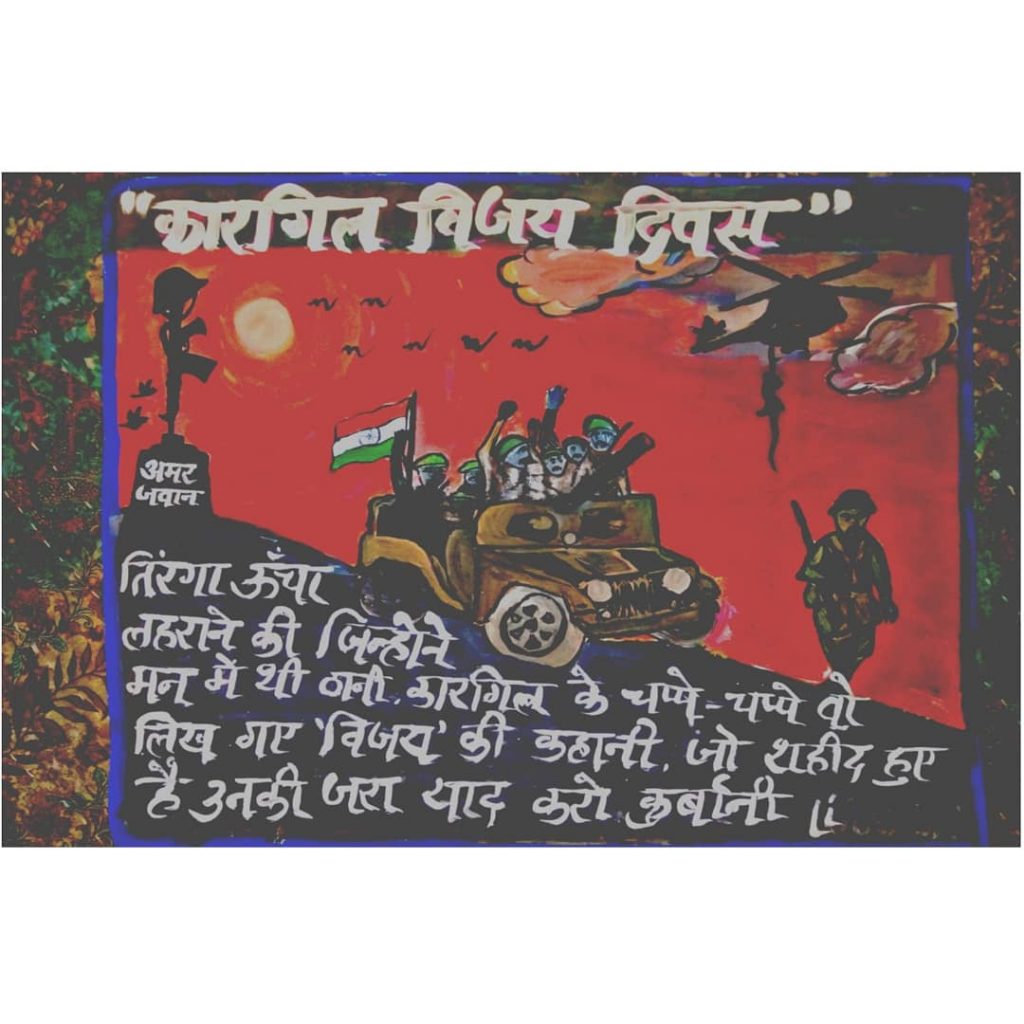 "कारगिल विजय दिवस"
अमर
जवान
तिरंगा ऊँचा
लहराने की जिन्होने
मन में थी ठानी, कारगिल के चप्पे-चप्पे वो
लिख गए 'विजय' की कहानी, जो शहीद हुए
है उनकी जरा याद करो कुर्बानी